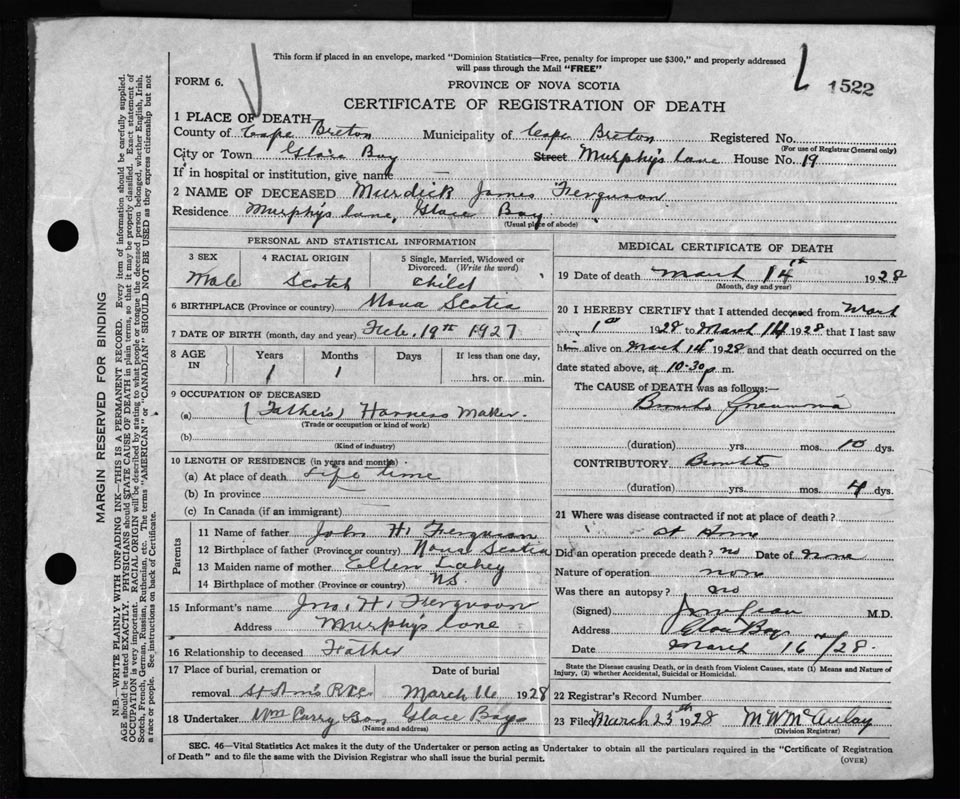 This form if placed in an envelope, marked "Dominion Statistics—Free, penalty for improper use $300," and properly addressed
will pass through the Mail "FREE"
FORM 6.
PROVINCE OF NOVA SCOTIA
1522
CERTIFICATE OF REGISTRATION OF DEATH
1 PLACE OF DEATH
County of Cape Breton Municipality of Cape Breton Registered No.
(For use of Registrar General only)
City or Town Glace Bay Street Murphy's Lane House No. 19
If in hospital or institution, give name —
2 NAME OF DECEASED Murdick James Ferguson
Residence Murphy's Lane, Glace Bay.
(Usual place of abode)
PERSONAL AND STATISTICAL INFORMATION
3 SEX 4 RACIAL ORIGIN 5 Single, Married, Widowed or Divorced. (Write the word)
Male Scotch Child
6 BIRTHPLACE (Province or country) Nova Scotia
7 DATE OF BIRTH (month, day and year) Feb. 19th 1927
8 AGE IN Years Months Days If less than one day,
1 1 hrs. or min.
9 OCCUPATION OF DECEASED
(a) (Fathers) Harness Maker.
(Trade or occupation or kind of work)
(b)
(Kind of industry)
10 LENGTH OF RESIDENCE (in years and months)
(a) At place of death Life time
(b) In province
(c) In Canada (if an immigrant)
Parents
11 Name of father John H. Ferguson
12 Birthplace of father (Province or country) Nova Scotia
13 Maiden name of mother Ellen Lahey
14 Birthplace of mother (Province or country) N.S.
15 Informant's name Jno. H. Ferguson
Address Murphy's Lane
16 Relationship to deceased Father
17 Place of burial, cremation or removal Date of burial
March 16 1928
18 Undertaker Wm Curry & Son Glace Bay
(Name and address)
MEDICAL CERTIFICATE OF DEATH
19 Date of death March 14th 1928
(Month, day and year)
20 I HEREBY CERTIFY that I attended deceased from March
1st 1928 to March 14 1928 that I last saw
him alive on March 14 1928 and that death occurred on the
date stated above, at 10-30 p. m.
The CAUSE of DEATH was as follows:—
(duration) yrs. mos. 10 dys.
CONTRIBUTORY
(duration) yrs. mos. 4 dys.
21 Where was disease contracted if not at place of death?
at Home
Did an operation precede death? no Date of none
Nature of operation none
Was there an autopsy? no
(Signed) M.D.
Address Glace Bay
Date March 16th/28.
State the Disease causing Death, or in death from Violent Causes, state (1) Means and Nature of
Injury, (2) whether Accidental, Suicidal or Homicidal.
22 Registrar's Record Number
23 Filed March 23th 1928 M W McAulay
(Division Registrar)
SEC. 46—Vital Statistics Act makes it the duty of the Undertaker or person acting as Undertaker to obtain all the particulars required in the "Certificate of Registration
of Death" and to file the same with the Division Registrar who shall issue the burial permit.
(OVER)
MARGIN RESERVED FOR BINDING
N.B.—WRITE PLAINLY WITH UNFADING INK—THIS IS A PERMANENT RECORD. Every item of information should be carefully supplied.
AGE should be stated EXACTLY. PHYSICIANS should STATE CAUSE OF DEATH in plain terms, so that it may be properly classified. Exact statement of
OCCUPATION is very important. RACIAL ORIGIN will be described by stating to what people or tongue the deceased person belonged, whether English, Irish,
Scotch, French, German, Russian, Ruthenian, etc. The terms "AMERICAN" or "CANADIAN" SHOULD NOT BE USED as they express citizenship but not
a race or people. See instructions on back of Certificate.